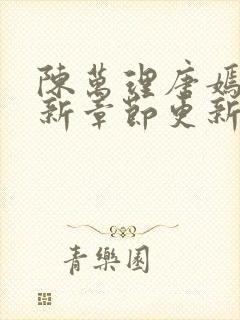 陳萬理唐嫣
新章節更新
青樂園